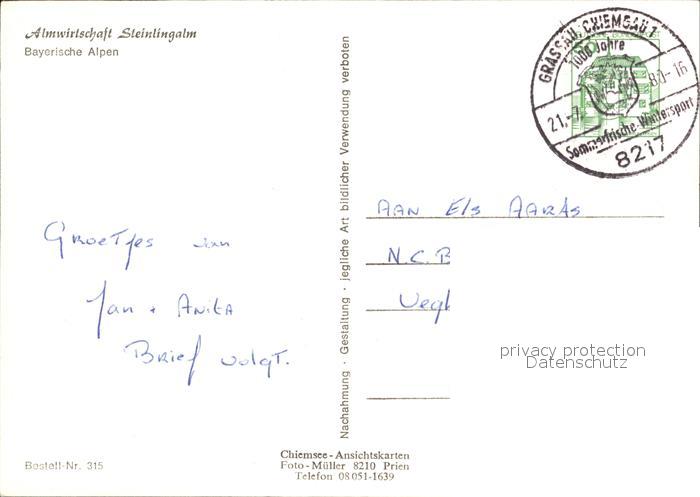 Almwirtschaft Steinlingalm
Bayerische Alpen
GRASSAU, CHIEMGAU 1
1000 Jahre
21.-7. 80-16
Sommerfrische-Wintersport
8217
Nachahmung · Gestaltung · jegliche Art bildlicher Verwendung verboten
Groetjes van
Jan + Anita
Brief volgt.
AAN Els AARts
N.C.B
Vegl
privacy protection
Datenschutz
Bestell-Nr. 315
Chiemsee-Ansichtskarten
Foto-Müller 8210 Prien
Telefon 08051-1639